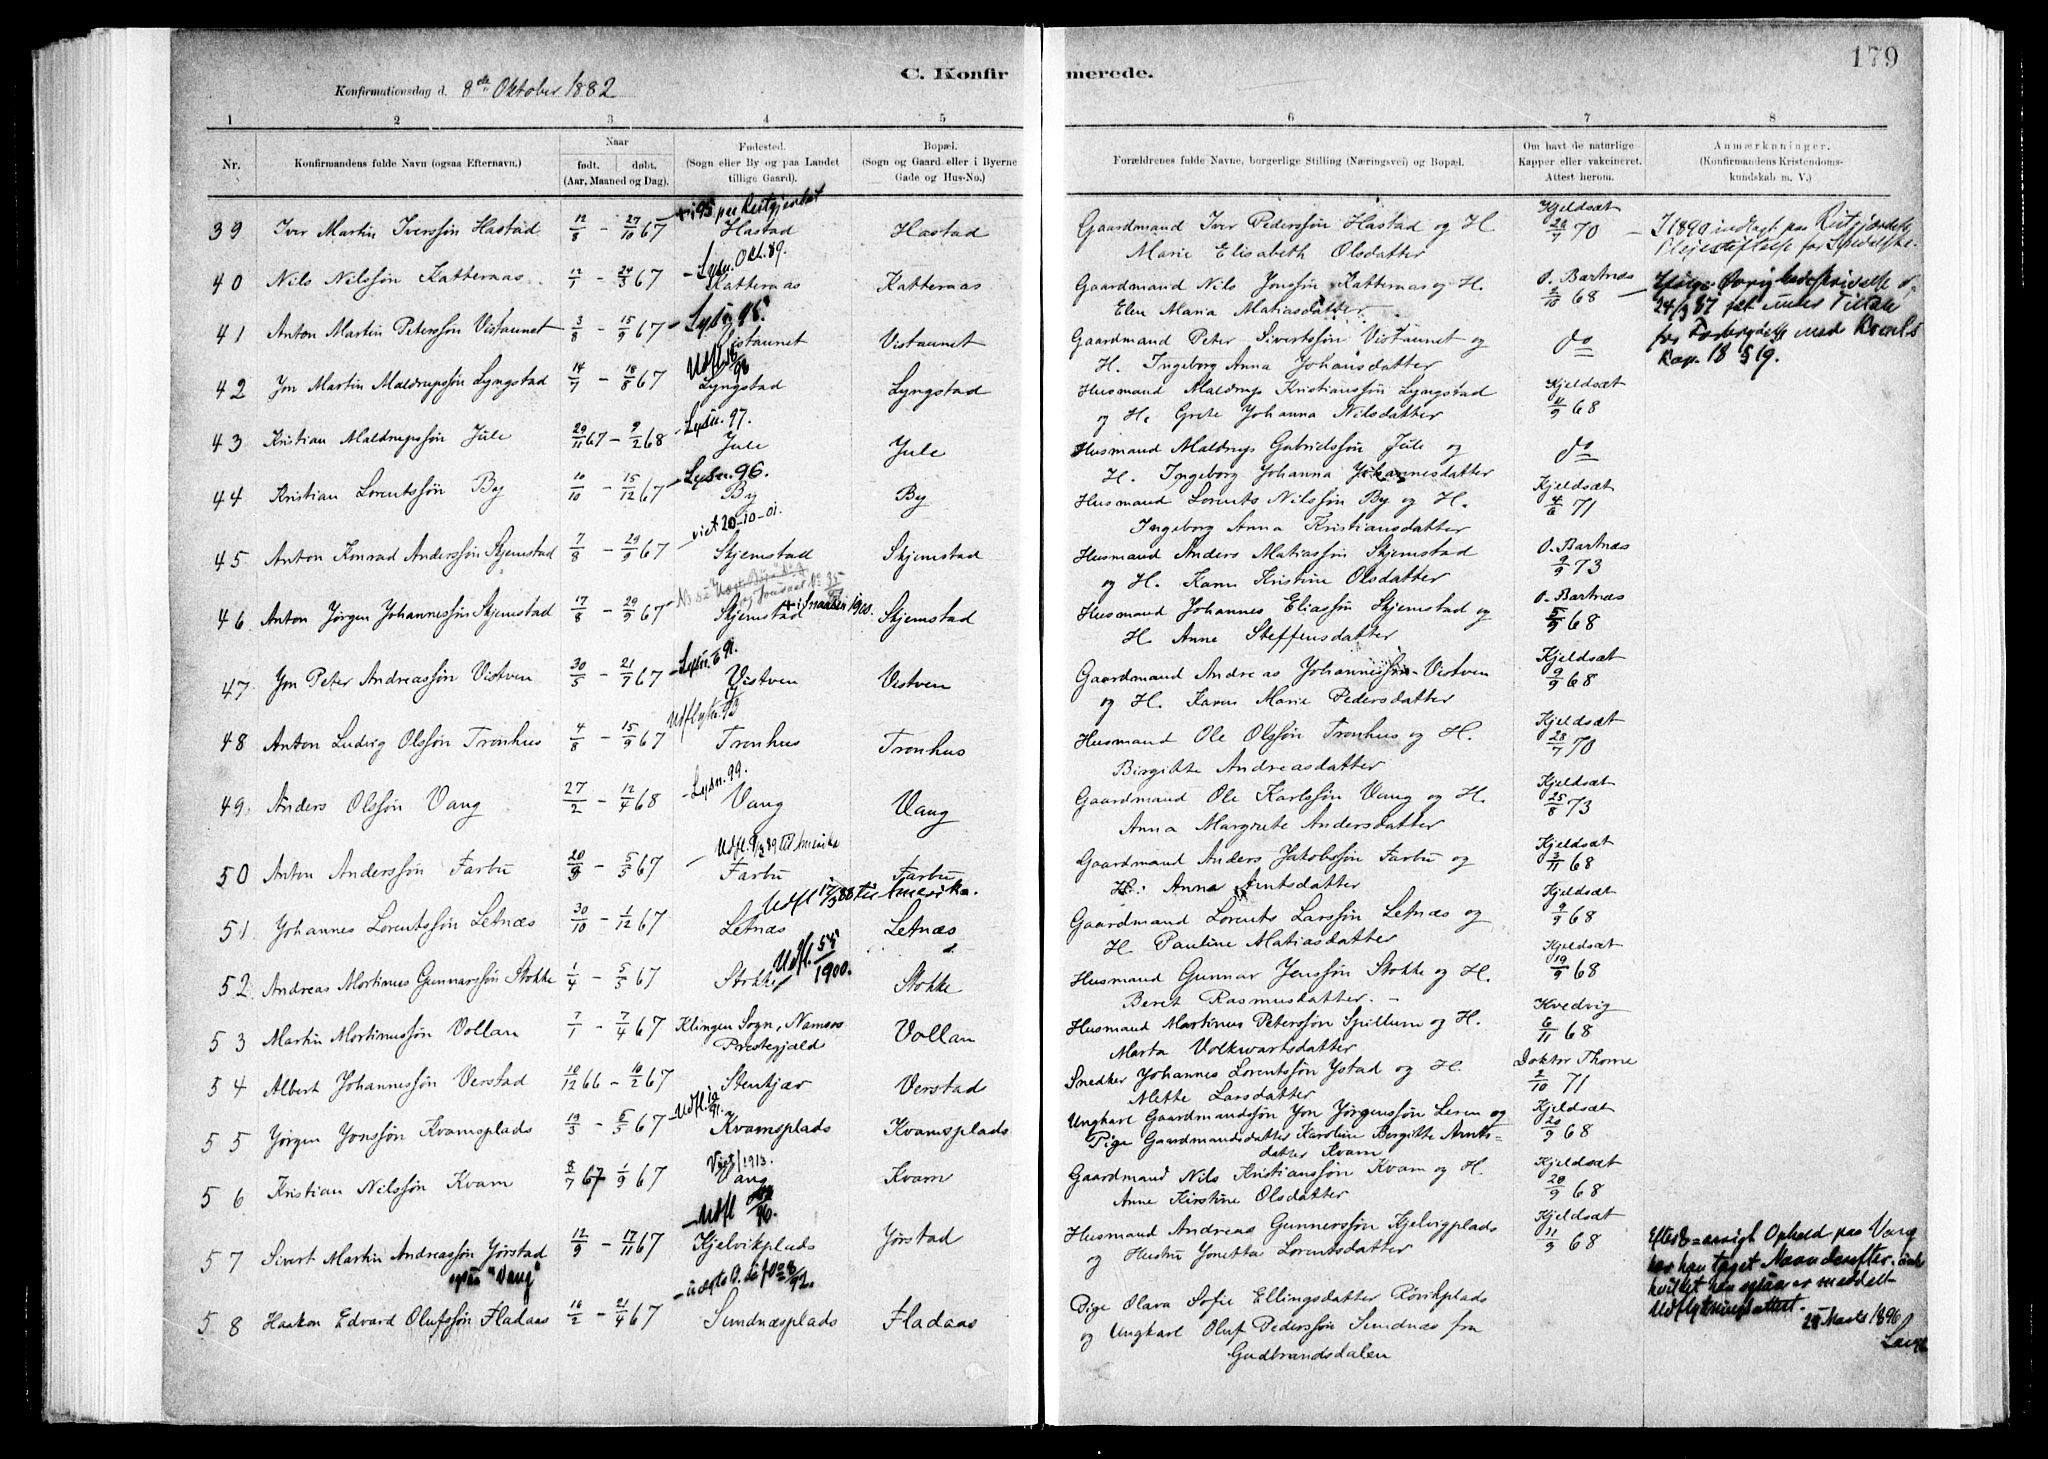 179
C. Konfirmerede.
Konfirmationsdag d. 8de Oktober 1882
1 2 3 4 5 6 7 8
Nr. Konfirmandens fulde Navn (ogsaa Efternavn.) Naar født, døbt, (Aar, Maaned og Dag). Fødested. (Sogn eller By og paa Landet tillige Gaard). Bopæl. (Sogn og Gaard eller i Byerne Gade og Hus-No.) Forældrenes fulde Navne, borgerlige Stilling (Næringsvei) og Bopæl. Om havt de naturlige Kapper eller vakcineret. Attest herom. Anmærkninger. (Konfirmandens Kristendomskundskab m. V.)
39 Iver Martin Iverssøn Hastad 12/8 – 27/10 67 Hastad Hastad Gaardmand Iver Pederssøn Hastad og H. Kjeldsæt
Marie Elisabeth Olsdatter 70 I 1890 indlagt paa Reitgjærdets Plejestiftelse for Spedalske
40 Nils Nilssøn Katteraas 12/1 – 24/3 67 – Lysn. Okt. 89. Katteraas Katteraas Gaardmand Nils Jonssøn Katteraas og H. O. Bartnæs
Elen Maria Matiasdatter 2/10 68
41 Anton Martin Peterssøn Vistaunet 3/8 – 15/9 67 – Lysn. 95. Vistaunet Vistaunet Gaardmand Peter Sivertssøn Vistaunet og do
H. Ingeborg Anna Johansdatter Kap. 18 § 19.
42 Jon Martin Maldrupssøn Lyngstad 14/7 – 18/8 67 Lyngstad Lyngstad Husmand Maldrup Kristianssøn Lyngstad Kjeldsæt
og H. Grete Johanna Nilsdatter 11/9 68
43 Kristian Maldrupssøn Jule 29/11 67 – 9/2 68 – Lysn. 97. Jule Jule Husmand Maldrup Gabrielssøn Jule og do
H. Ingeborg Johanna Johannesdatter
44 Kristian Lorentssøn By 10/10 – 15/12 67 – Lysn. 96. By By Husmand Lorents Nilssøn By og H. Kjeldsæt
Ingeborg Anna Kristiansdatter 4/6 71
45 Anton Konrad Anderssøn Skjemstad 7/8 – 29/9 67 – viet 20-10-01. Skjemstad Skjemstad Husmand Anders Matiassøn Skjemstad O. Bartnæs
og H. Karen Kristine Olsdatter 9/9 73
46 Anton Jørgen Johannessøn Skjemstad 17/8 – 29/9 67 Skjemstad Skjemstad Husmand Johannes Eliassøn Skjemstad og O. Bartnæs
H. Anne Steffensdatter 5/9 68
47 Jon Peter Andreassøn Vistven 30/5 – 21/7 67 Vistven Vistven Gaardmand Andreas Johannessøn Vistven Kjeldsæt
og H. Karen Marie Pedersdatter 9/9 68
48 Anton Ludvig Olssøn Tronhus 4/8 – 15/9 67 Tronhus Tronhus Husmand Ole Olssøn Tronhus og H. Kjeldsæt
Birgitte Andreasdatter 28/7 70
49 Anders Olssøn Vang 27/2 – 12/4 68 – Lysn. 99. Vang Vang Gaardmand Ole Karlssøn Vang og H. Kjeldsæt
Anna Margrete Andersdatter 25/8 73
50 Anton Anderssøn Farbu 20/3 – 5/5 67 Farbu Farbu Gaardmand Anders Jakobssøn Farbu og Kjeldsæt
H. Anna Arntsdatter 3/11 68
51 Johannes Lorentssøn Letnæs 30/10 – 1/12 67 Udfl. 17/3 88 til Amerika. Letnæs Letnæs Gaardmand Lorents Larssøn Letnæs og Kjeldsæt
H. Pauline Matiasdatter 9/9 68
52 Andreas Mortinus Gunnarssøn Stokke 1/4 – 5/5 67 Stokke Udfl. 1900. Stokke Husmand Gunnar Jenssøn Stokke og H. Kjeldsæt
Beret Rasmusdatter. 19/9 68
53 Martin Mortinussøn Vollan 7/1 – 7/4 67 Klingen Sogn, Namsos Prestegjæld Vollan Husmand Martinus Peterssøn Spillum og H. Kvedvig
Marta Volkwartsdatter 6/11 68
54 Albert Johannessøn Verstad 10/12 66 – 10/2 67 Stenkjær Verstad Snedker Johannes Lorentssøn Ystad og H. Doktor Thorne
Mette Larsdatter 2/10 71
55 Jørgen Jonssøn Kvamsplads 19/3 – 5/5 67 Udfl. Kvamsplads Kvamsplads Ungkarl Gaardmandssøn Jon Jørgenssøn Leren og Kjeldsæt
Pige Gaardmandsdatter Karoline Bergitte Arnts- 20/9 68
datter Kvam
56 Kristian Nilssøn Kvam 8/7 67 – 1/9 67 Viet 1913. Vang Kvam Gaardmand Nils Kristianssøn Kvam og H. Kjeldsæt
Anne Kirstine Olsdatter 20/9 68
57 Sivert Martin Andreassøn Jørstad 12/9 – 17/11 67 – Udfl. Kjelvikplads Jørstad Husmand Andreas Gunnerssøn Kjelvigplads Kjeldsæt
ogsaa "Vang" og Hustru Jonetta Lorentsdatter 11/9 68 Ophold paa Vang har han taget Navn derefter
Udflytningsattest.
29 Marts 1896
58 Haakon Edvard Olufssøn Fladaas 16/2 – 21/4 67 Sundnæsplads Fladaas Pige Olava Sofie Ellingsdatter Røvikplads
og Ungkarl Oluf Pederssøn Sundnæs fra
Gudbrandsdalen